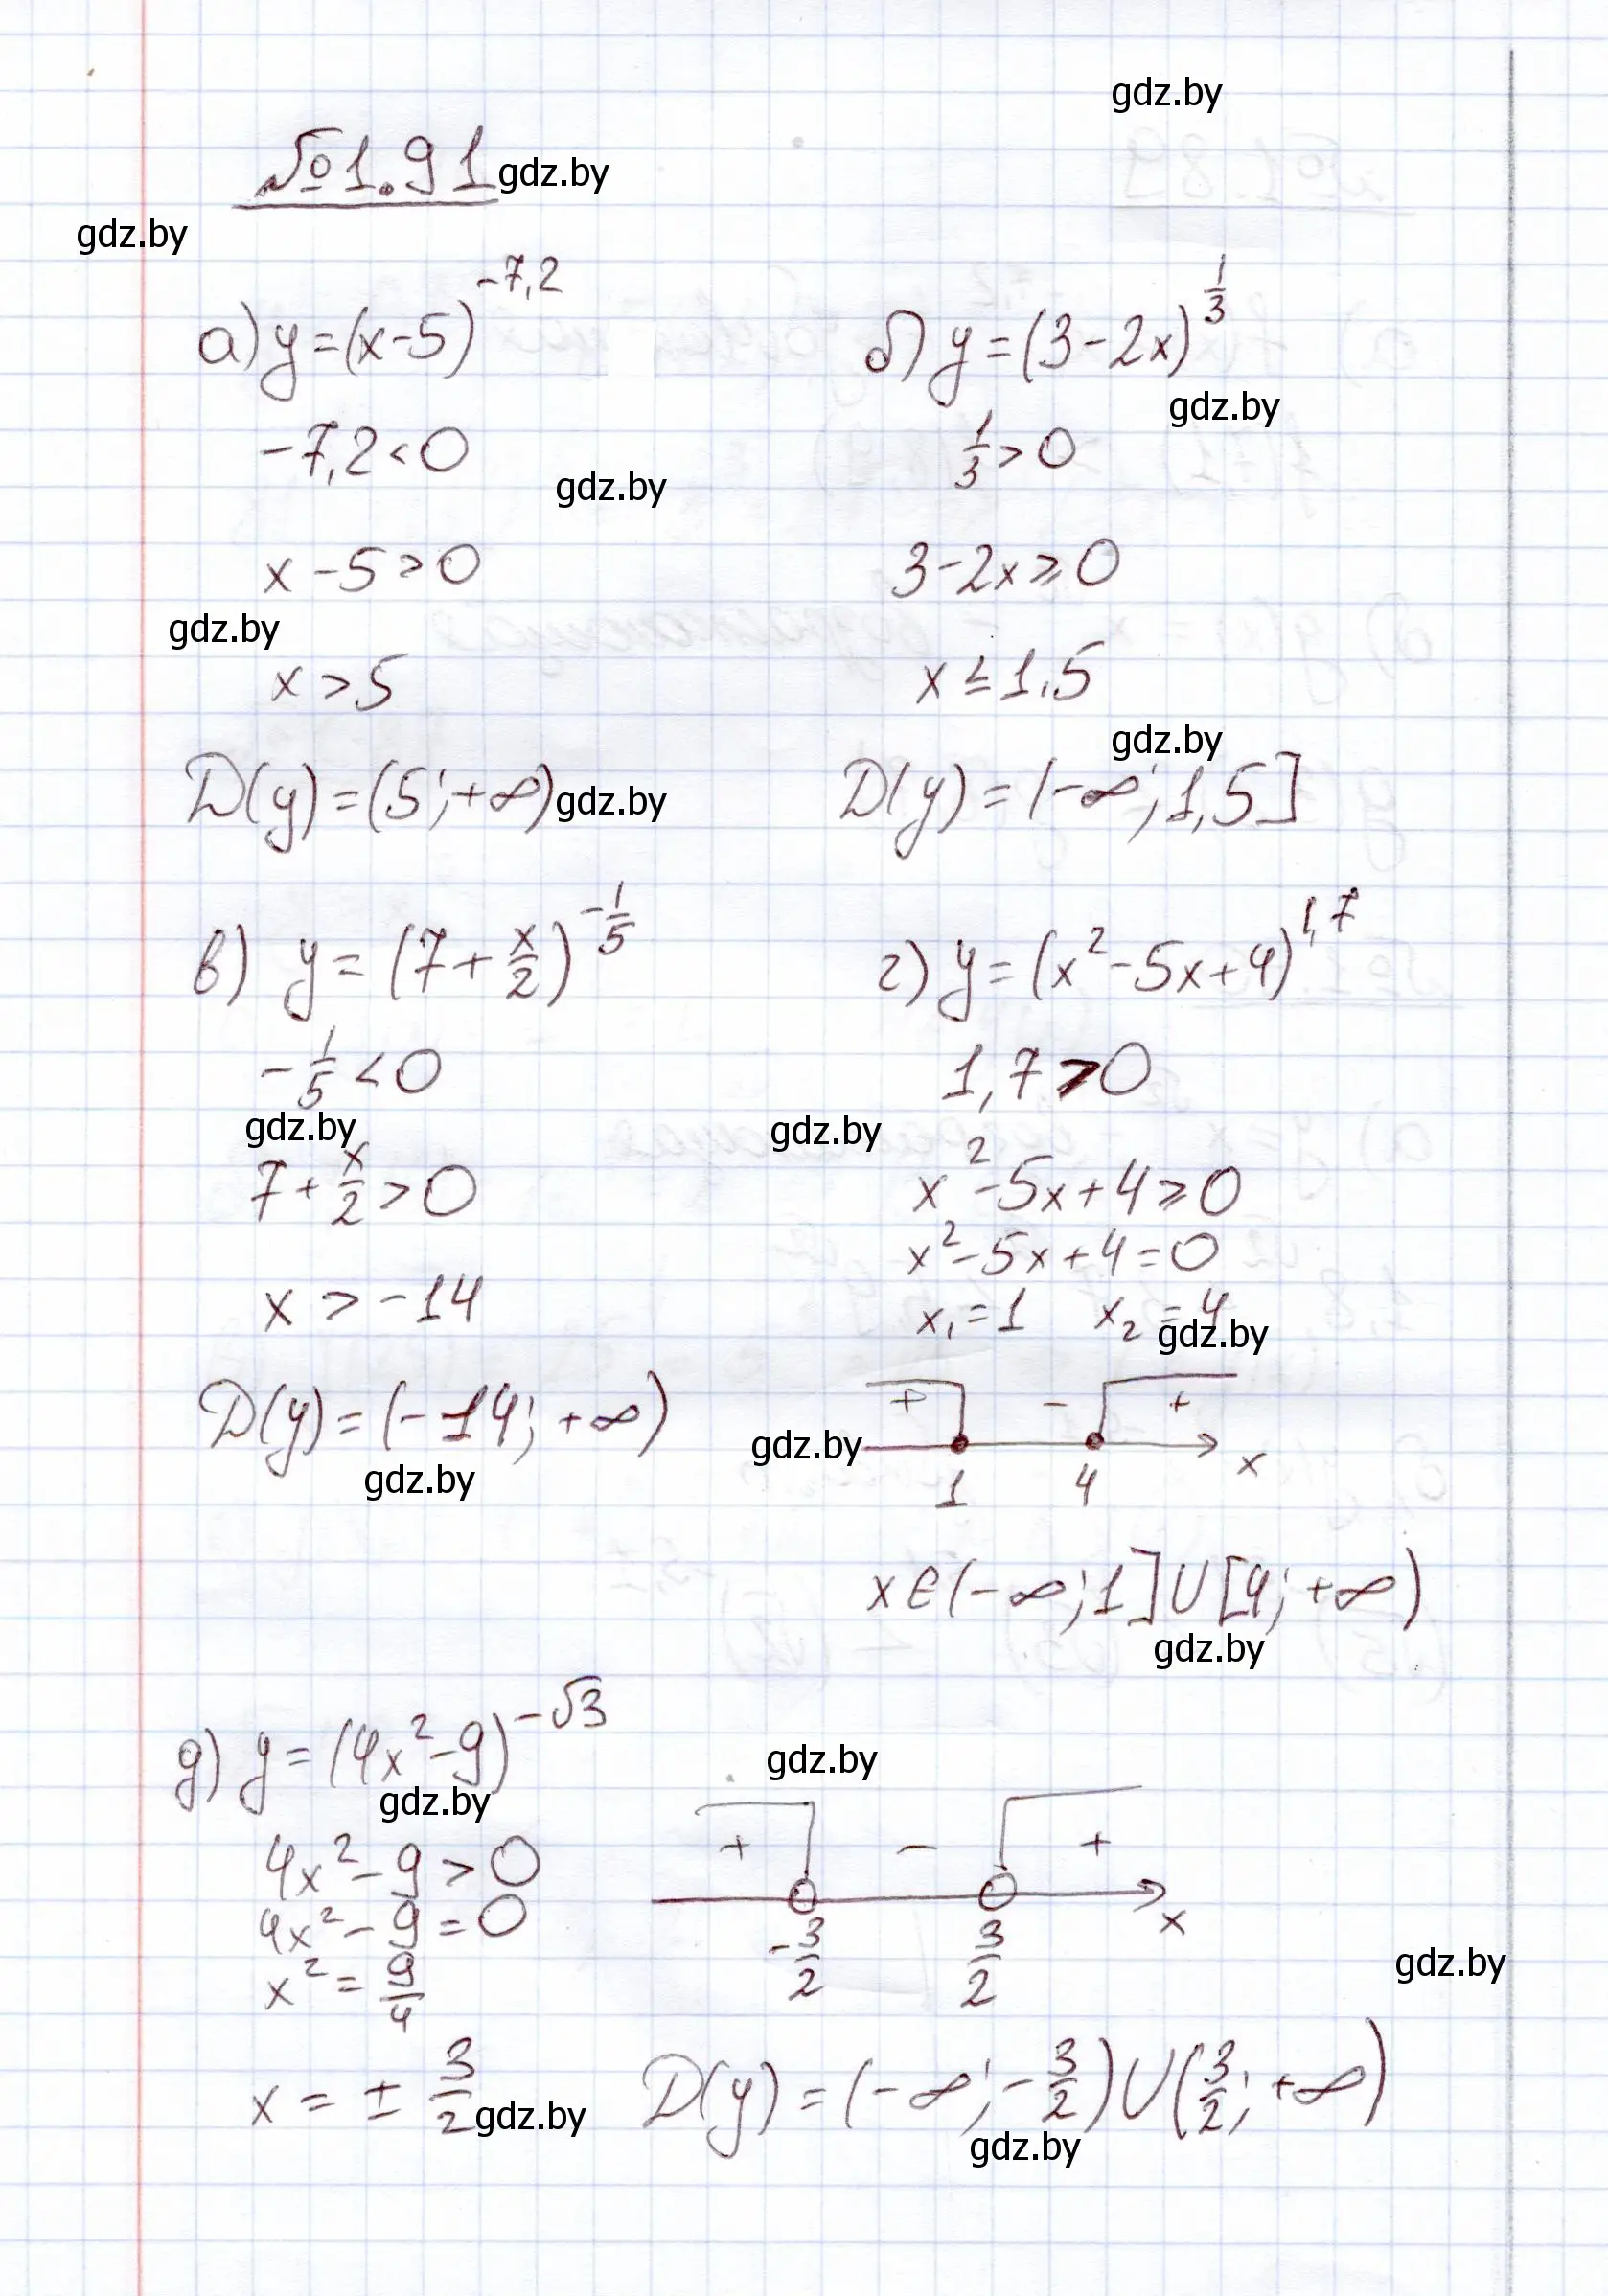 gdz.by
№1.91 gdz.by
gdz.by
а) y=(x-5)^{-7,2}
-7,2<0
gdz.by
x-5>0
gdz.by
x>5
D(y)=(5;+∞) gdz.by
б) y=(3-2x)^{1/3}
gdz.by
1/3>0
3-2x≥0
x≤1.5
gdz.by
D(y)=(-∞;1,5]
в) y=(7+x/2)^{-1/5}
-1/5<0
gdz.by
7+x/2>0
x>-14
D(y)=(-14;+∞)
gdz.by
г) y=(x²-5x+4)^{1,7}
1,7>0
gdz.by
x²-5x+4≥0
x²-5x+4=0
x₁=1 x₂=4
gdz.by
+ - +
gdz.by
x
1 4
x∈(-∞;1]∪[4;+∞)
gdz.by
д) y=(4x²-9)^{-√3}
gdz.by
4x²-9>0
4x²-9=0
x²=9/4
x=±3/2 gdz.by
gdz.by
+ - +
x
-3/2 3/2
gdz.by
D(y)=(-∞;-3/2)∪(3/2;+∞)
gdz.by